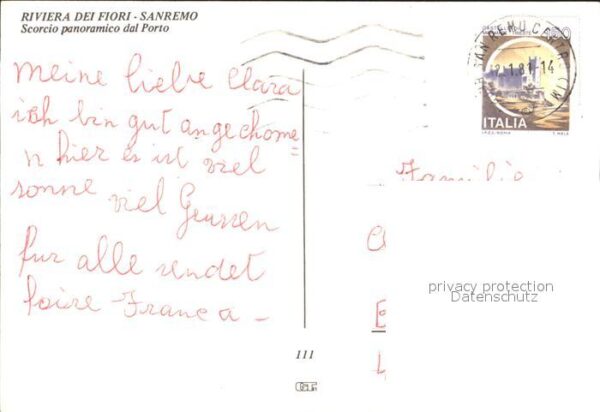 RIVIERA DEI FIORI - SANREMO
Scorcio panoramico dal Porto
Meine liebe Clara
ich bin gut angechome
n hier es ist viel
sonne viel Grussen
fur alle sendet
Franca -
111
ITALIA
I.P.Z.S. ROMA
Familie
privacy protection
Datenschutz